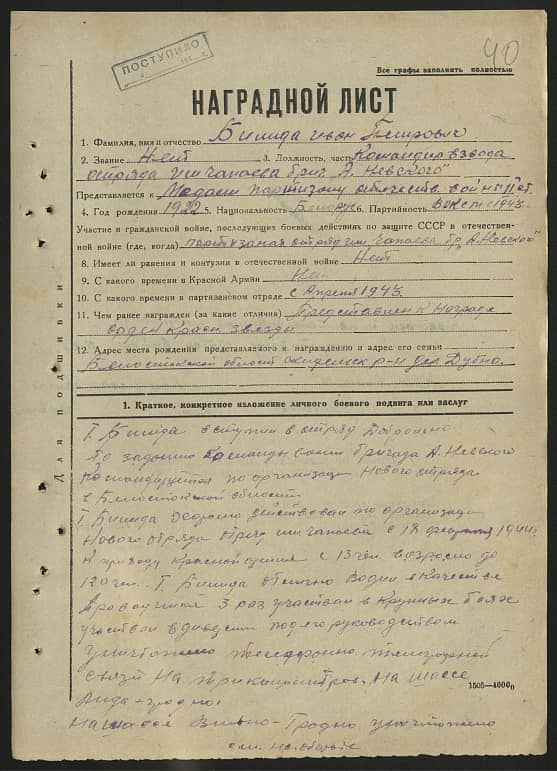 ПОСТУПИЛО
40
Все графы заполнить полностью
НАГРАДНОЙ ЛИСТ
1. Фамилия, имя и отчество Бишда Иван Петрович
2. Звание Нет 3. Должность, часть Командир взвода
отряда им чапаева бриг А. Невского"
Представляется к Медали партизану отечеств. войны II ст
4. Год рождения 1922 5. Национальность Белорус 6. Партийность ВЛКСМ с 194
Участие в гражданской войне, последующих боевых действиях по защите СССР и отечествен-
ной войне (где, когда) партизаная отряд им чапаева бр. А. Невского"
8. Имеет ли ранения и контузии в отечественной войне Нет
9. С какого времени в Красной Армии Нет
10. С какого времени в партизанском отряде с Апреля 194
11. Чем ранее награжден (за какие отличия) Представлен к Награде
орден Красн звезды
12. Адрес места рождения представляемого к награждению и адрес его семьи
Белостокской области скидельск р-н дер Дубно.
Для подшивки
1. Краткое, конкретное изложение личного боевого подвига или заслуг
Т. вступил в отряд
По заданию Командования бригада А. Невского
Командируется по организации Нового отряда
в Белостокской области
Т. действовал по организации
Нового отряда отряд им чапаева с 18 февраля 1944
К приходу красной армии с 13 чел возросло до
120 чел. Т. отлично Водил в качестве
3 раз участвовал в крупных боях
участвовал в под его руководством
уничтожено телефонно
связи На три километров. На шоссе
Лида – гродно
На шоссе Вильно – Гродно уничтожено
см. на обороте
1505—4000